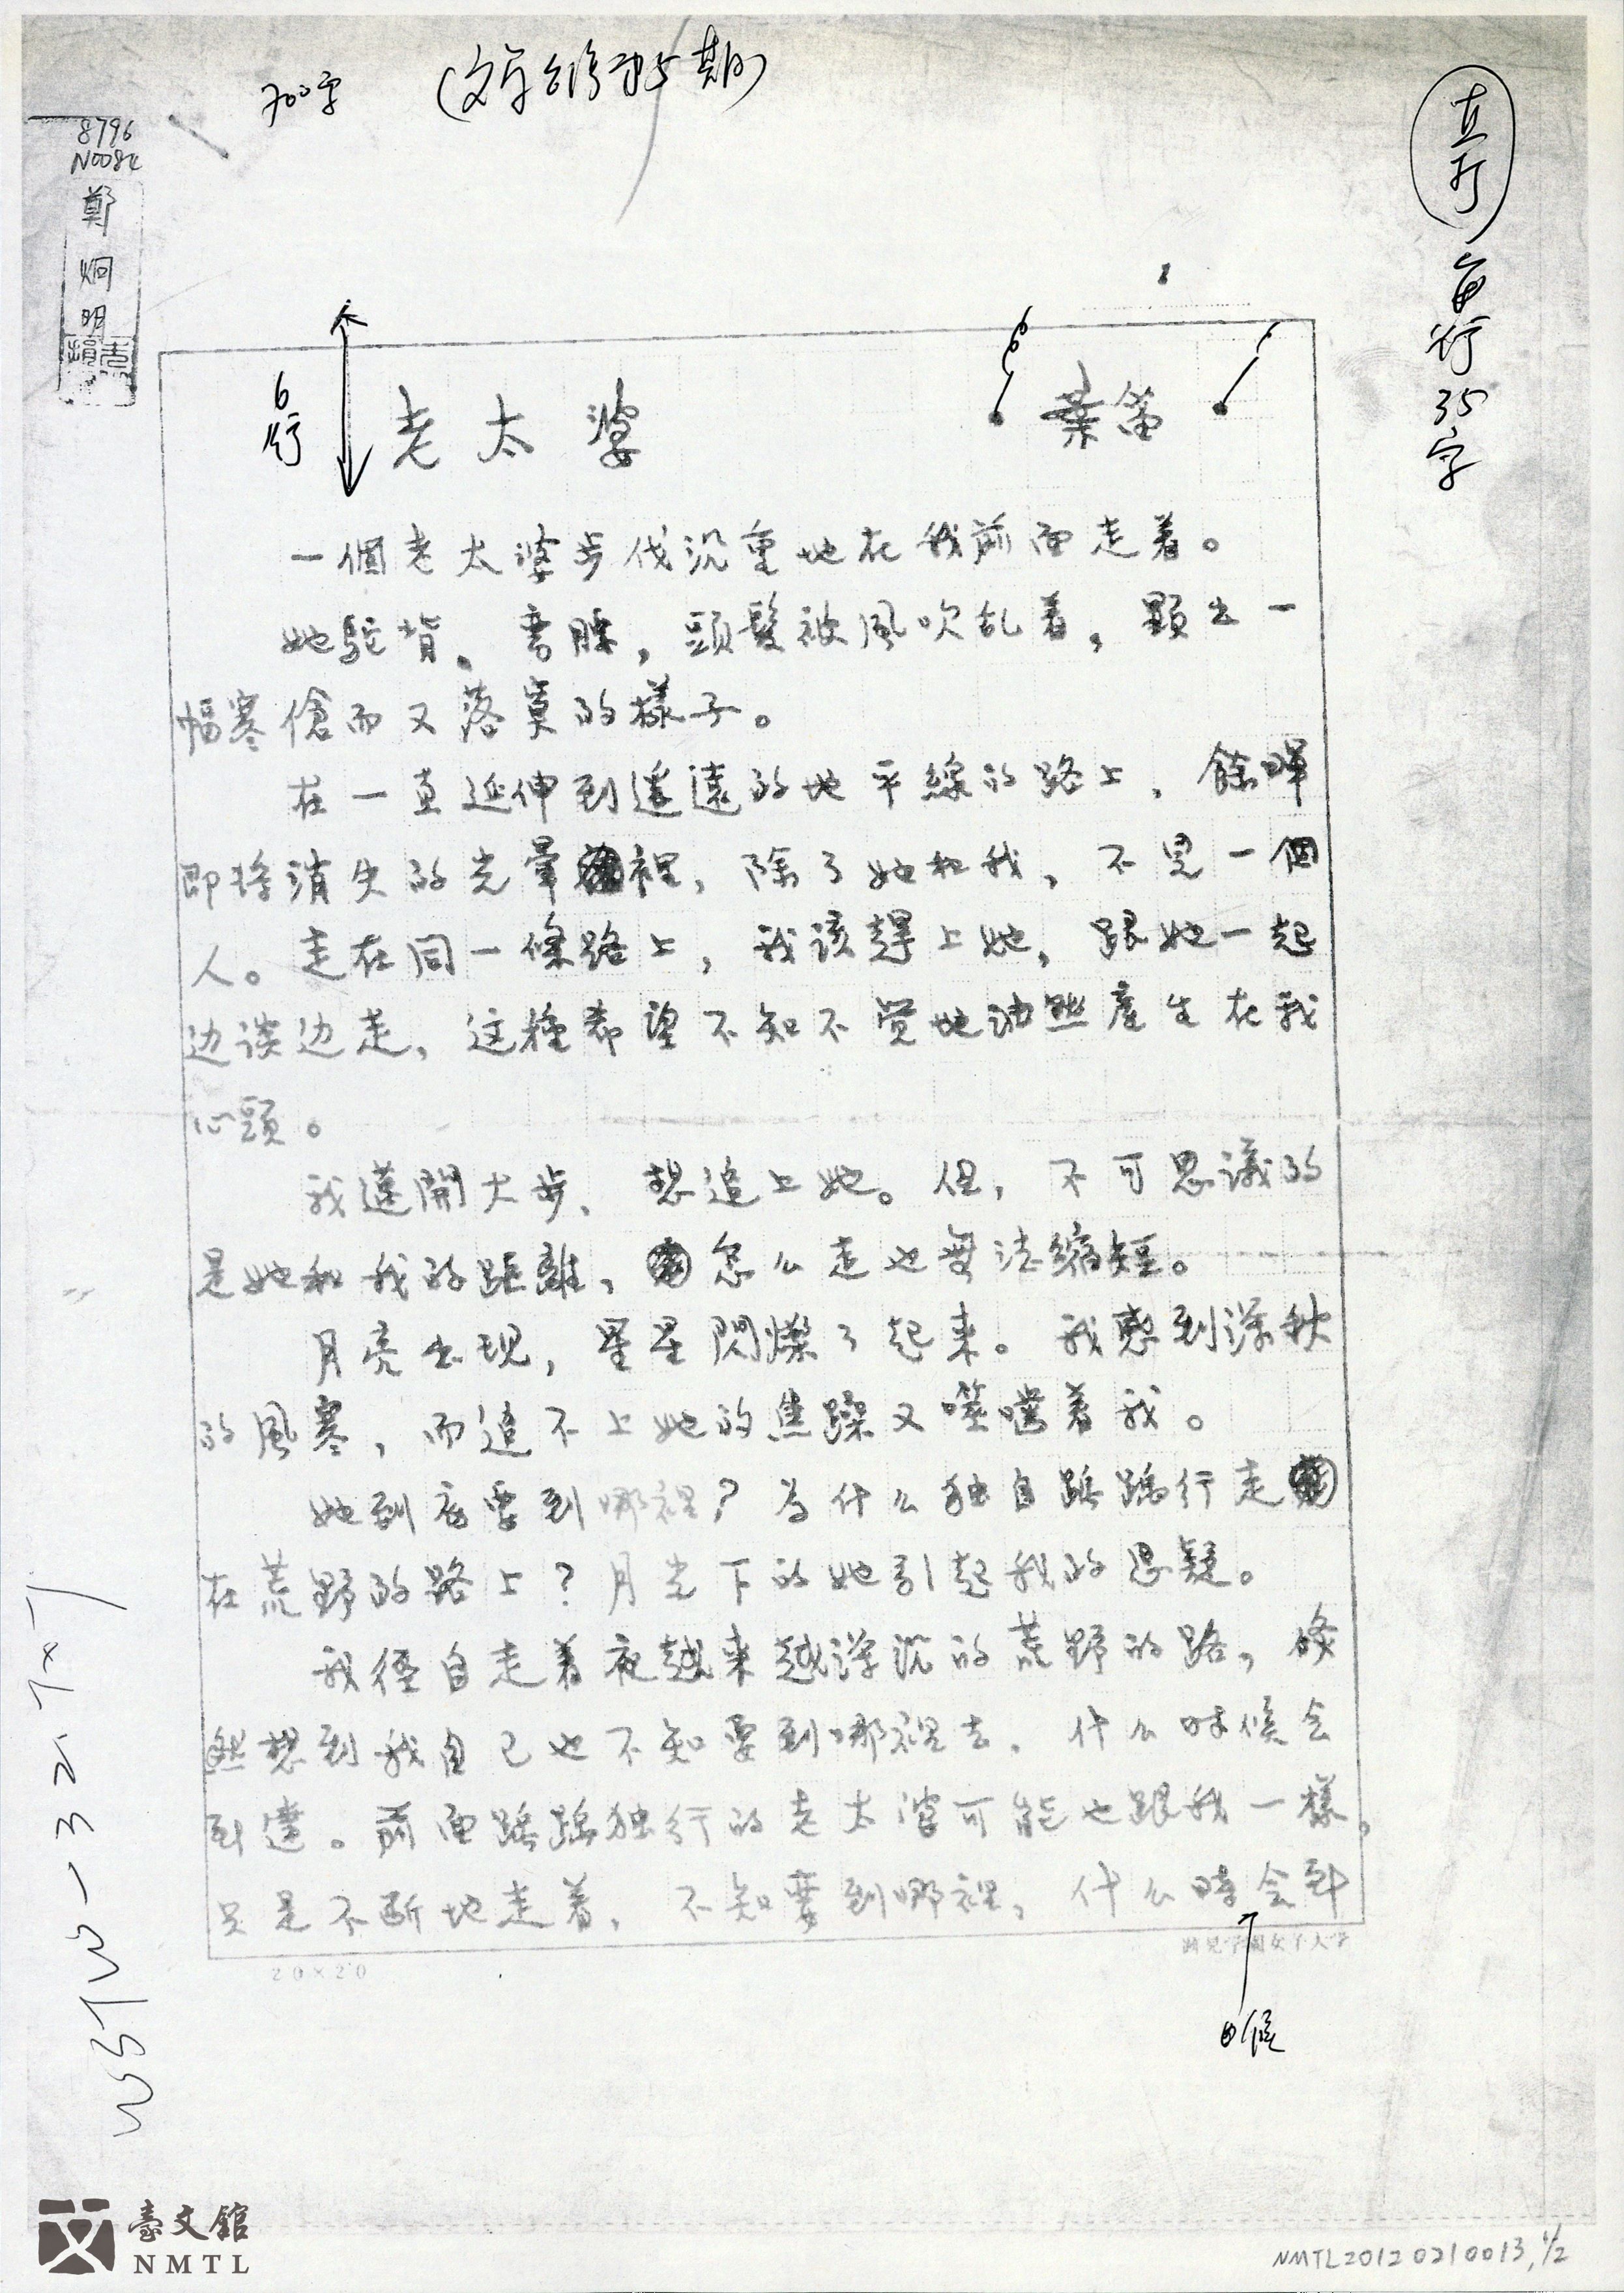 700字
(文学台湾35期)
直打
每行35字
8796
N0084
鄭烱明
6行
老太婆
葉笛
一個老太婆步伐沉重地在我前面走着。
她駝背、害臊，頭髮被風吹乱着，顯出一
幅寒傖而又落莫的樣子。
在一直延伸到遙遠的地平線的路上，餘暉
即將消失的光暈裡，除了她和我，不見一個
人。走在同一條路上，我該趕上她，跟她一起
边談边走，这種希望不知不觉地油然産生在我
心頭。
我邁開大步、想追上她。但，不可思議的
是她和我的距離，怎么走也無法縮短。
月亮出现，星星閃爍了起来。我感到深秋
的風寒，而追不上她的焦躁又噬嚙着我。
她到底要到哪裡？為什么独自踽踽行走
在荒野的路上？月光下的她引起我的思疑。
我徑自走着夜越来越深沉的荒野的路，倏
然想到我自己也不知要到哪裡去，什么时候会
到達。前面踽踽独行的老太婆可能也跟我一樣，
只是不断地走着，不知要到哪裡，什么時会到
時候
20×20
跡見学園女子大学
W31W-32.TXT
臺文館
NMTL
NMTL20120210013,1/2